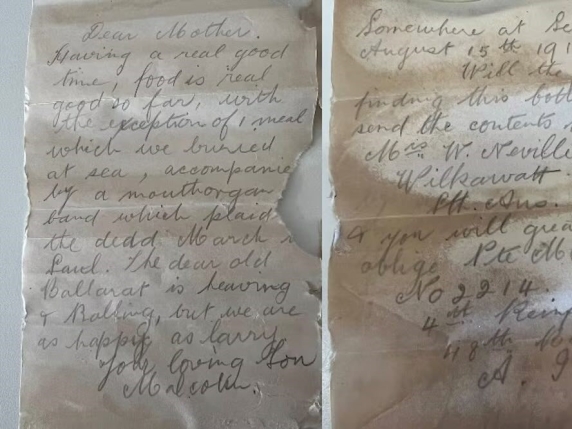 Dear Mother.
Having a real good
time, food is real
good so far, with
the exception of 1 meal
which we buried
at sea, accompanie
by a mouthorgan
band which plaid
the dedd March
Saul. The dear old
Ballarat is heaving
& Balling, but we are
as happy as larry
your loving Son
Malcolm.
Somewhere at Se
August 15th 191
Will the
finding this bott
send the contents
Mrs W. Neville
Wilkawatt
Sth. Aus.
& you will grea
oblige Pte M
No 2214.
4th Rein
48th
A. I